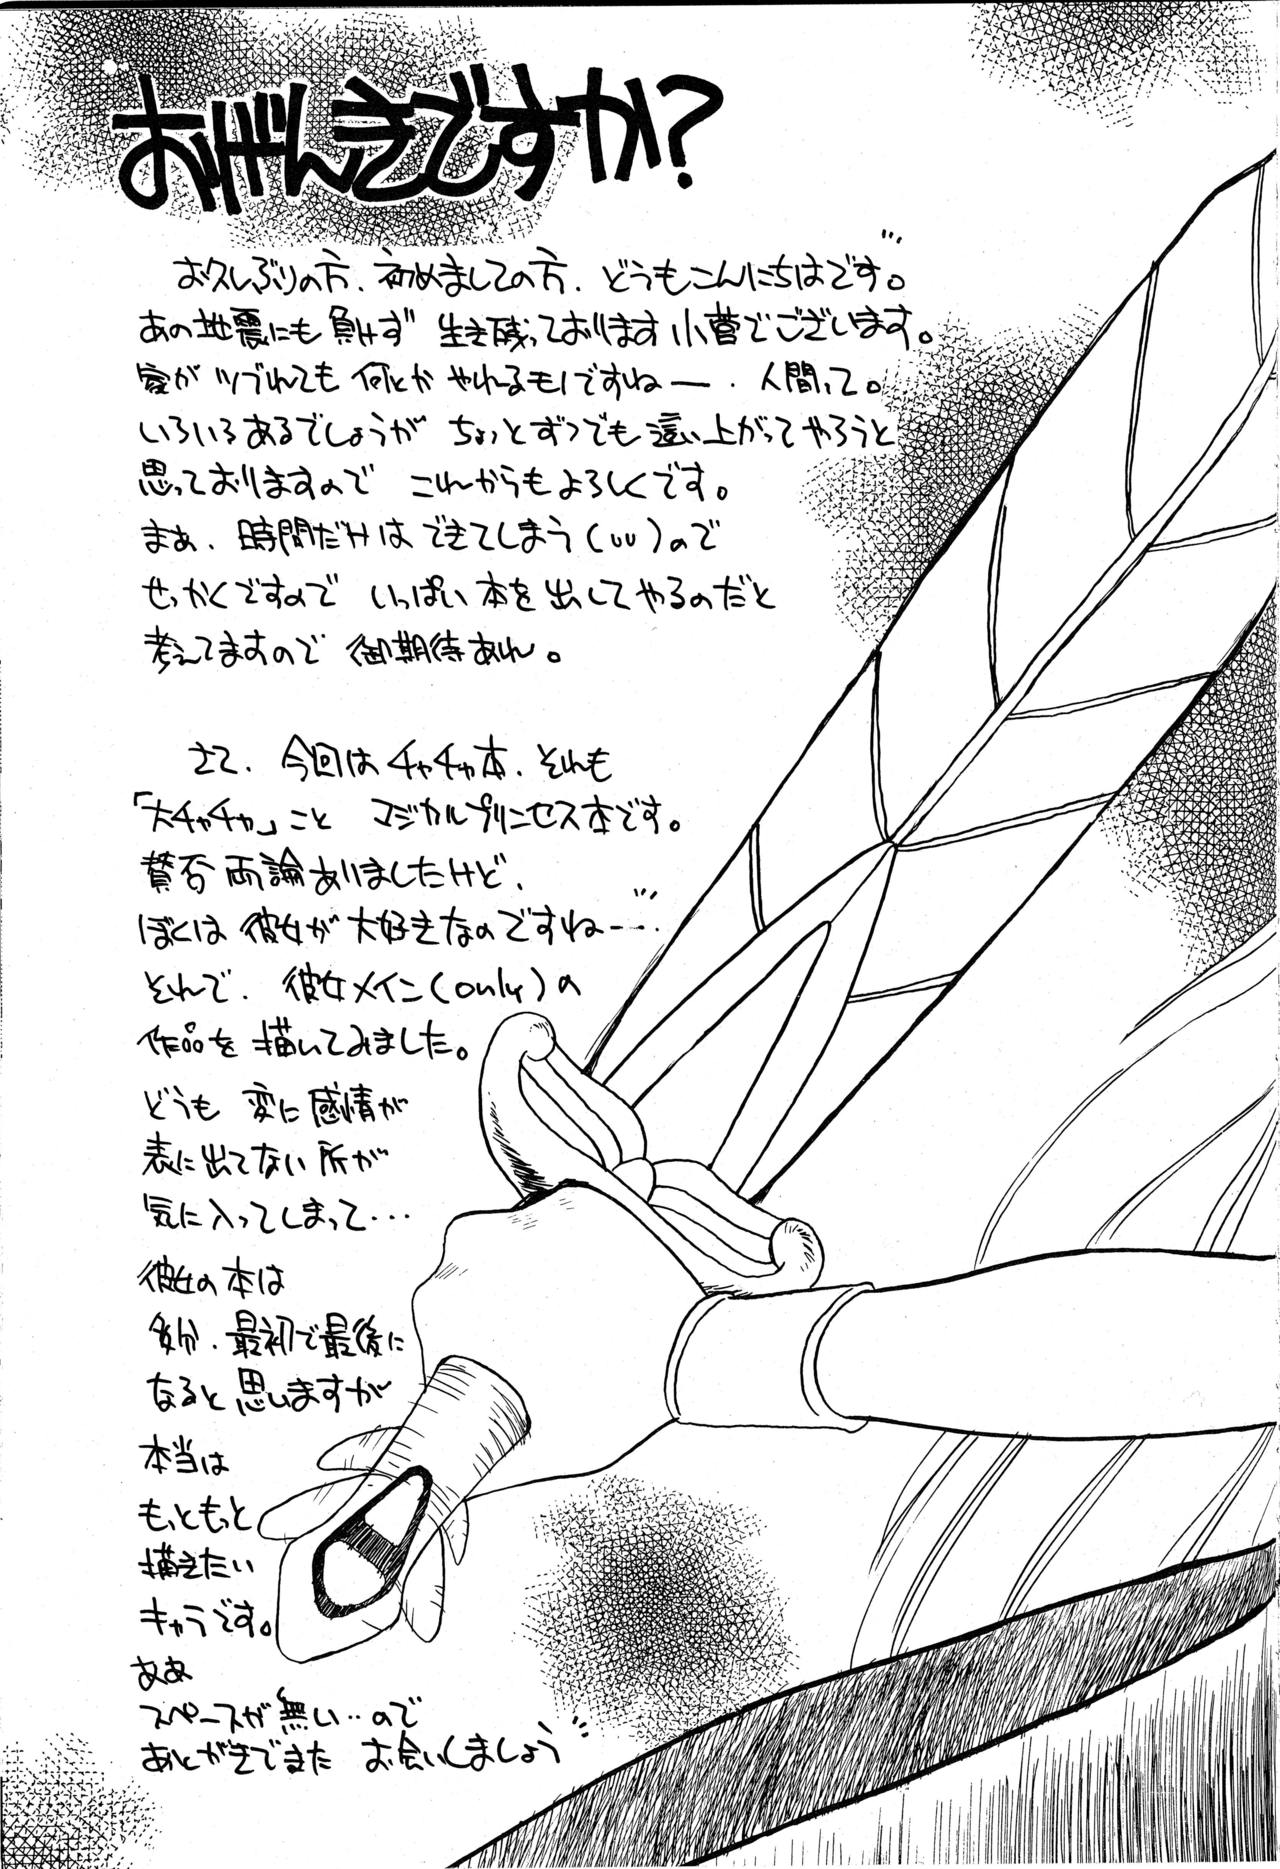 おげんきですか?
お久しぶりの方、初めましての方、どうもこんにちはです。
あの地震にも負けず 生き残っております小菅でございます。
家がツブれても 何とか やれるモノですねー、人間って。
いろいろあるでしょうが ちょっとずつでも這い上がってやろうと
思っておりますので これからもよろしくです。
まぁ、時間だけはできてしまう( )ので
せっかくですので いっぱい本を出してやるのだと
考えてますので 御期待あれ。
さて、今回はチャチャ本、それも
「大チャチャ」こと マジカルプリンセス本です。
賛否両論ありましたけど、
ぼくは彼女が大好きなのですねー…
それで、彼女メイン(only)の
作品を描いてみました。
どうも変に感情が
表に出てない所が
気に入ってしまって・・・
彼女の本は
多分、最初で最後に
なると思いますが
本当は
もっともっと
描きたい
キャラです。
ああ
スペースが無い…ので
あとがきでまた お会いしましょう